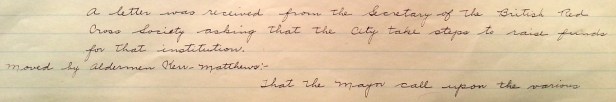 A letter was received from the Secretary of the British Red
Cross Society asking that the City take steps to raise funds
for that institution.
Moved by Aldermen Kerr-Matthews:-
That the Mayor call upon the various